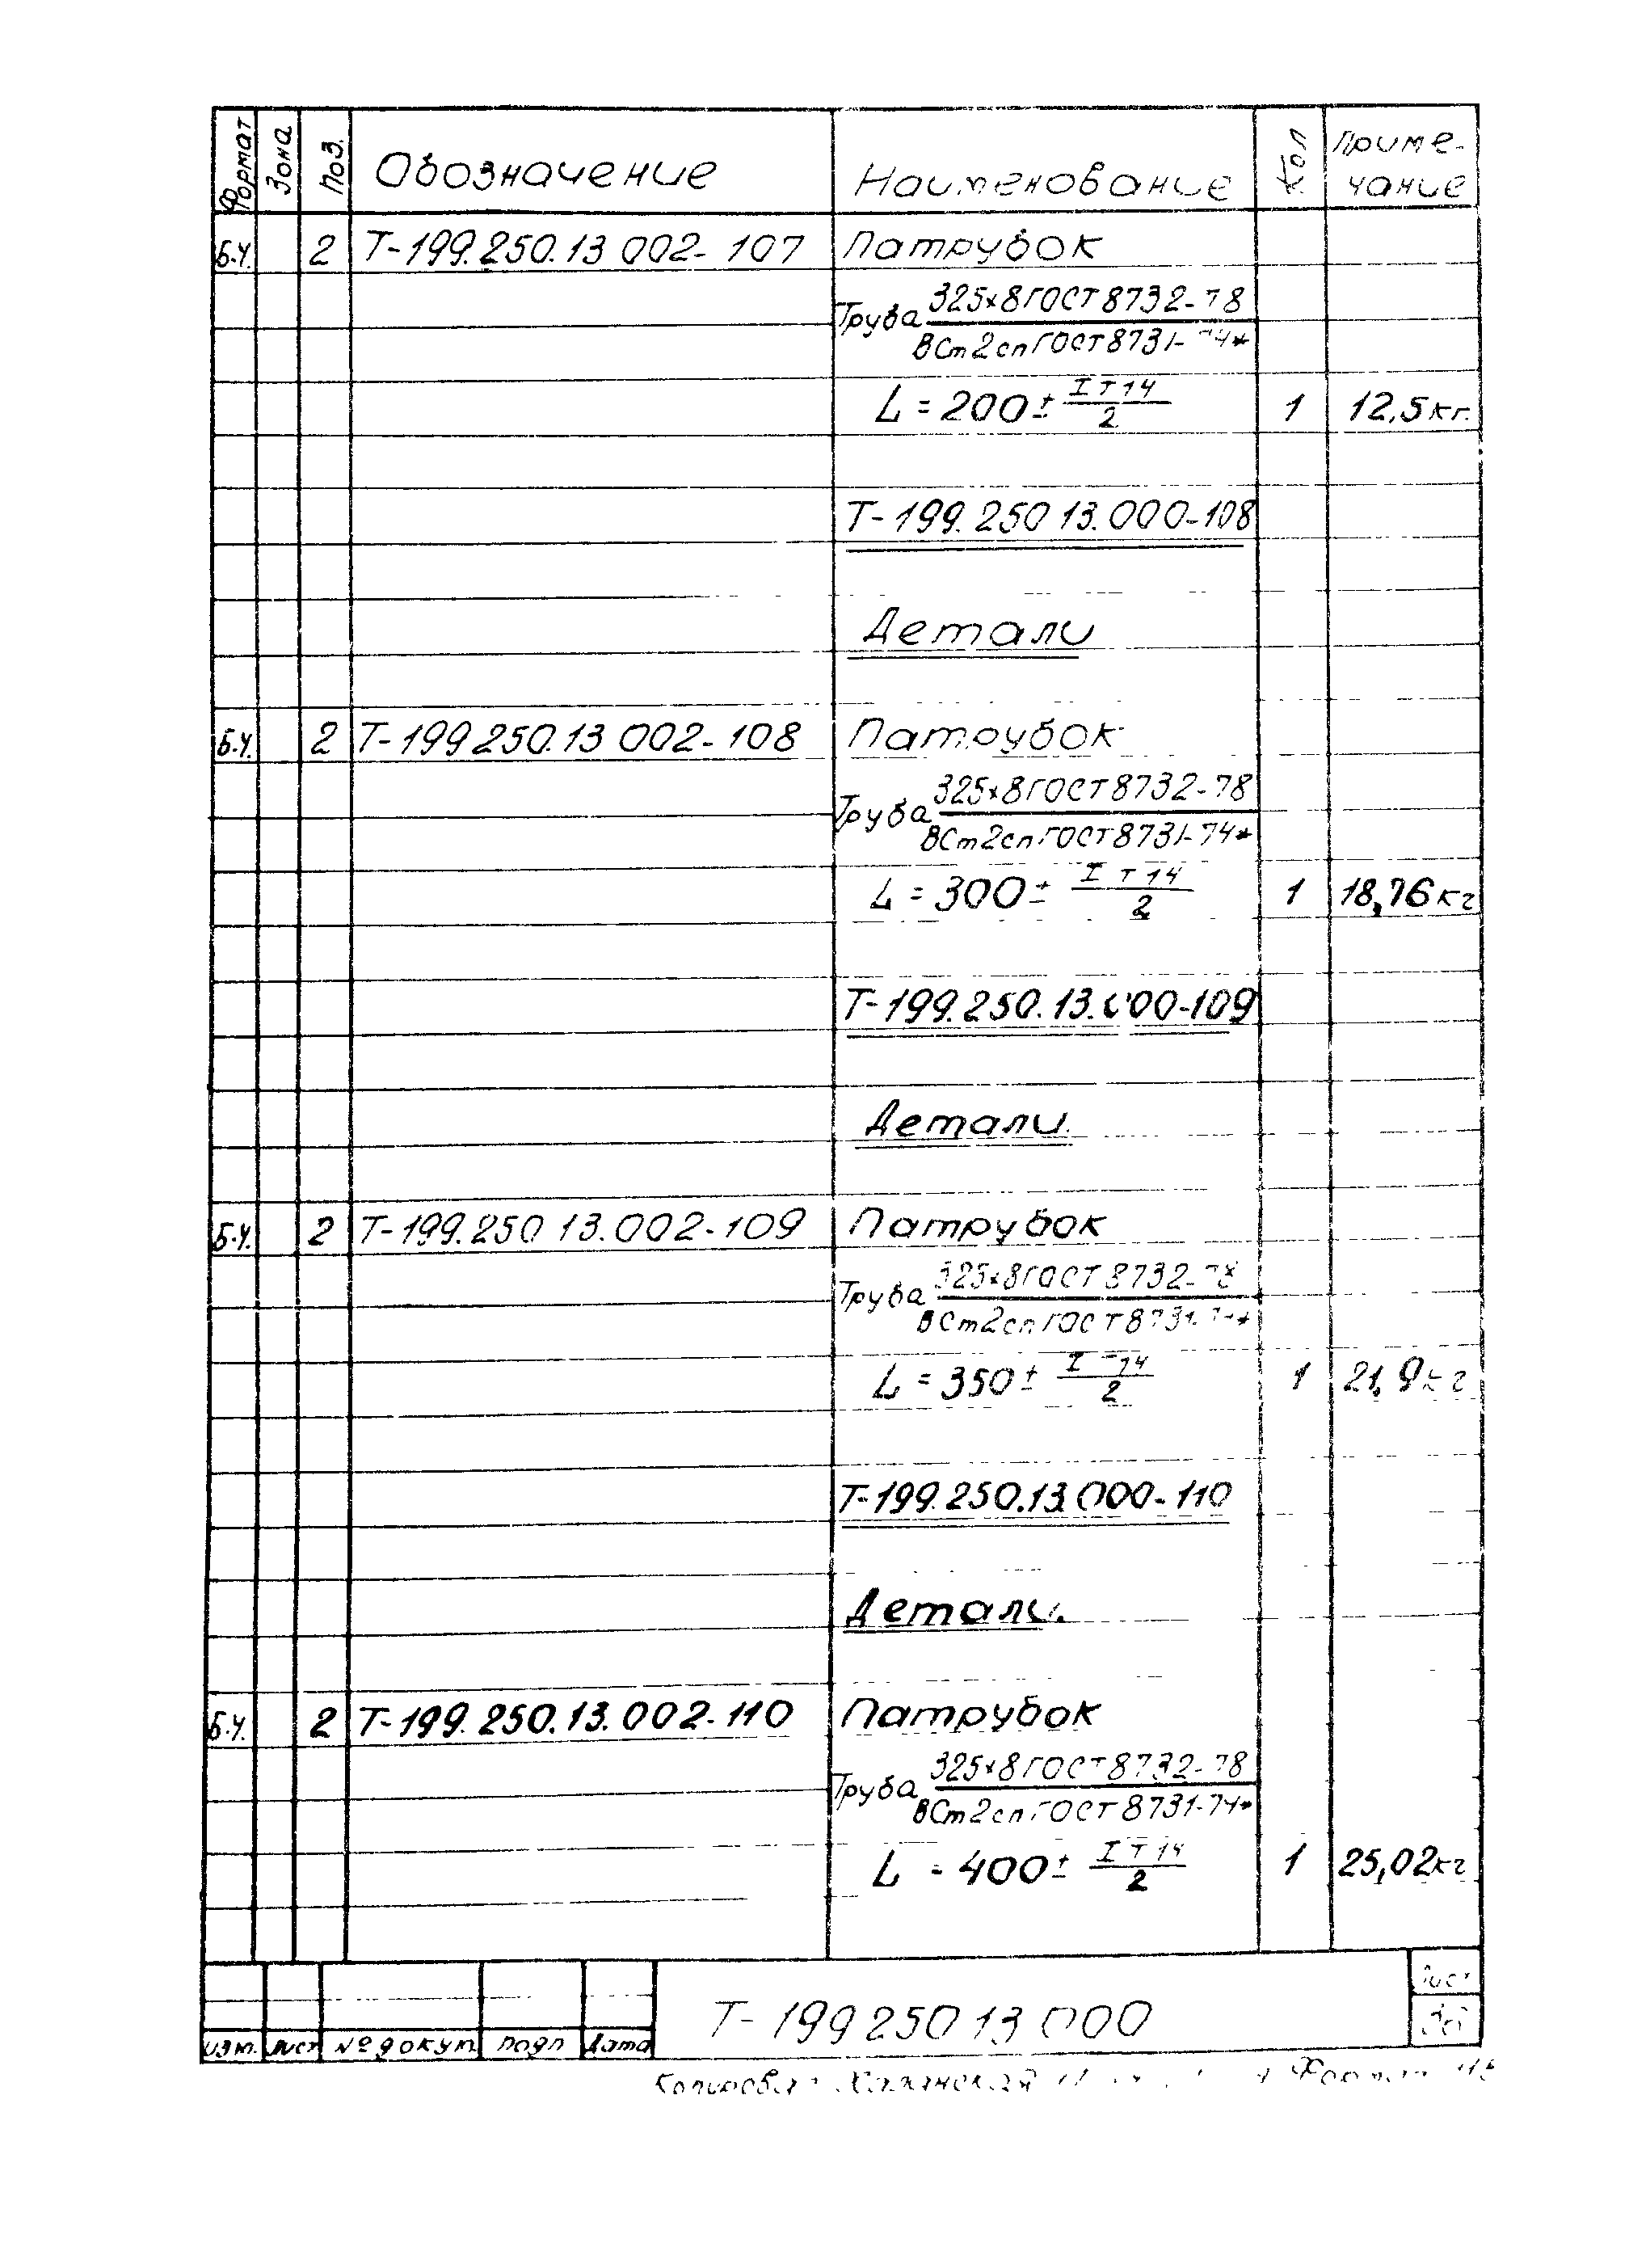 Формат Зона Поз. Обозначение Наименование Кол Приме-
чание
Б.Ч. 2 Т-199.250.13 002-107 Патрубок
Труба 325х8 ГОСТ 8732-78
ВСт2сп ГОСТ 8731-74*
L=200± IT14/2 1 12,5кг.
Т-199.250 13.000-108
Детали
Б.Ч. 2 Т-199 250.13 002-108 Патрубок
Труба 325х8 ГОСТ 8732-78
ВСт2сп ГОСТ 8731-74*
L=300± IT14/2 1 18,76кг
Т-199.250.13.000-109
Детали.
Б.Ч. 2 Т-199.250 13.002-109 Патрубок
Труба 325х8 ГОСТ 8732-78
ВСт2сп ГОСТ 8731-74*
L=350± IT14/2 1 21,9кг
Т-199.250.13.000-110
Детали.
Б.Ч. 2 Т-199.250.13.002-110 Патрубок
Труба 325х8 ГОСТ 8732-78
ВСт2сп ГОСТ 8731-74*
L=400± IT14/2 1 25,02кг
Т-199 250 13 000 Лист
Изм. Лист № докум подп Дата
Копировал Формат